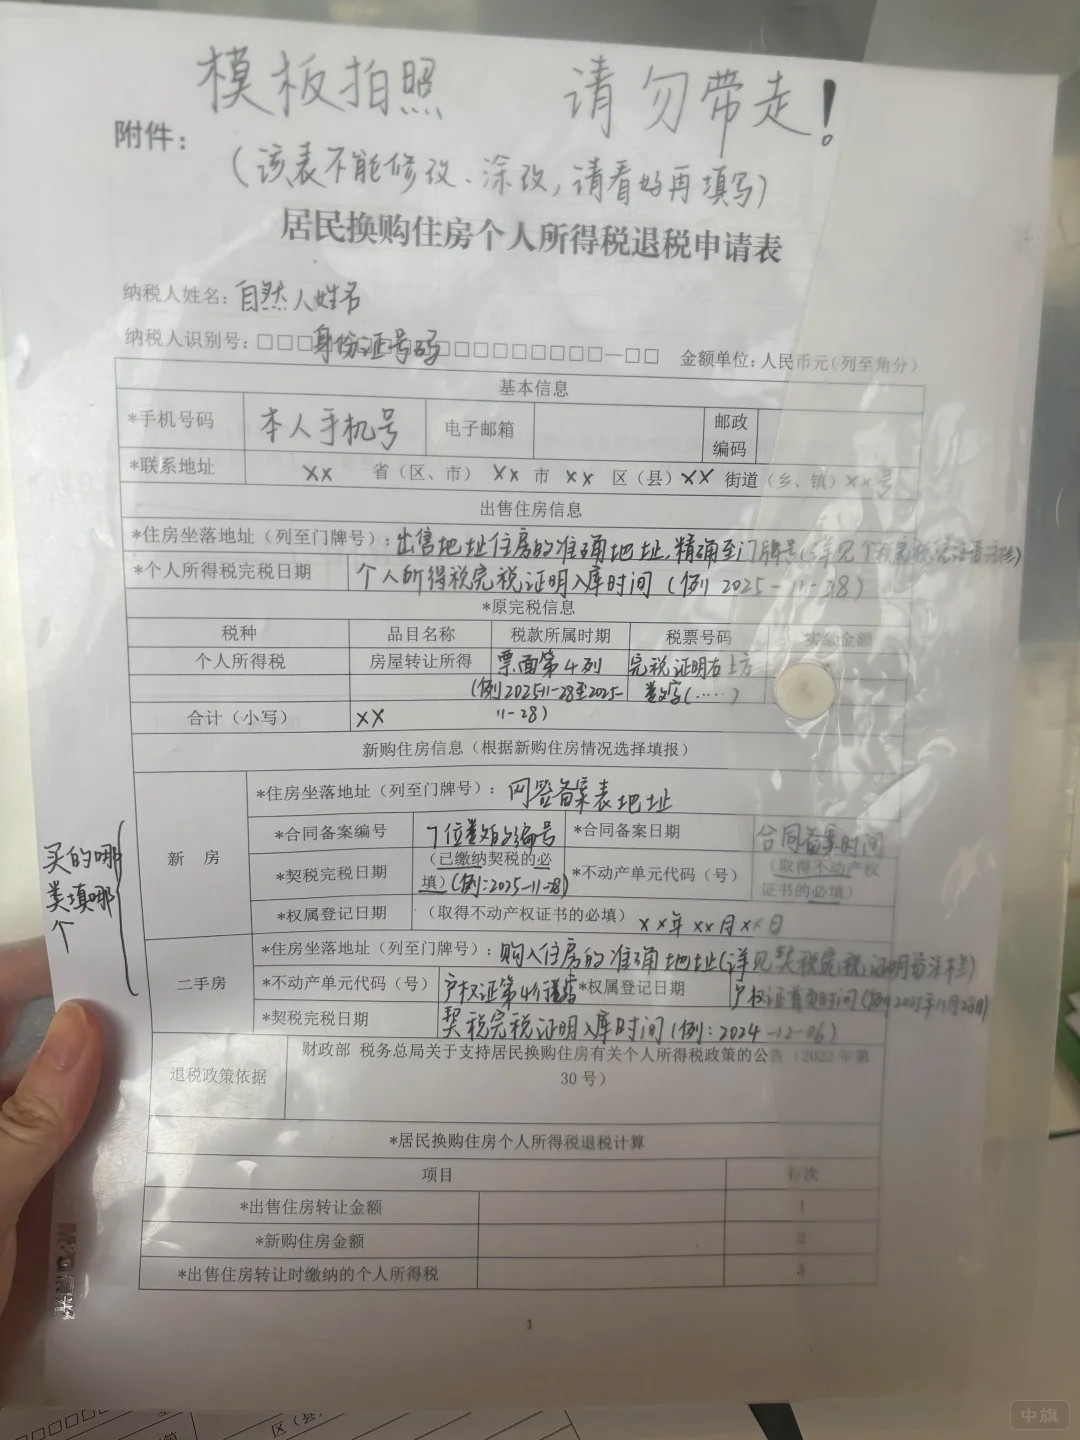 模板拍照 请勿带走!
附件:
(该表不能修改、涂改,请看好再填写)
居民换购住房个人所得税退税申请表
纳税人姓名: 自然人姓名
纳税人识别号: □□□身份证号码□□□□□□□□□□—□□ 金额单位: 人民币元(列至角分)
基本信息
*手机号码 本人手机号 电子邮箱 邮政编码
*联系地址 xx 省(区、市) xx 市 xx 区(县) xx 街道(乡、镇) xx号
出售住房信息
*住房坐落地址(列至门牌号): 出售地址住房的准确地址,精确至门牌号(详见个税完税
*个人所得税完税日期 个人所得税完税证明入库时间(例 2025-11-28)
*原完税信息
税种 品目名称 税款所属时期 税票号码 实缴金额
个人所得税 房屋转让所得 票面第4列 完税证明右上方
(例2025-11-28至2025-11-28) 数字(……)
合计(小写) xx
新购住房信息(根据新购住房情况选择填报)
买的哪类填哪个
新 房
*住房坐落地址(列至门牌号): 网签备案表地址
*合同备案编号 7位数的编号 *合同备案日期 合同备案时间
*契税完税日期 (已缴纳契税的必填)(例:2025-11-28) *不动产单元代码(号) (取得不动产权证书的必填)
*权属登记日期 (取得不动产权证书的必填) xx年xx月xx日
二手房
*住房坐落地址(列至门牌号): 购入住房的准确地址(详见契税完税证明备注栏)
*不动产单元代码(号) 户权证第4行 *权属登记日期 户权证首页时间(例2025年11月28日)
*契税完税日期 契税完税证明入库时间(例:2024-12-06)
退税政策依据 财政部 税务总局关于支持居民换购住房有关个人所得税政策的公告(2022年第30号)
*居民换购住房个人所得税退税计算
项目 行次
*出售住房转让金额 1
*新购住房金额 2
*出售住房转让时缴纳的个人所得税 3
1
区(县)
中旗